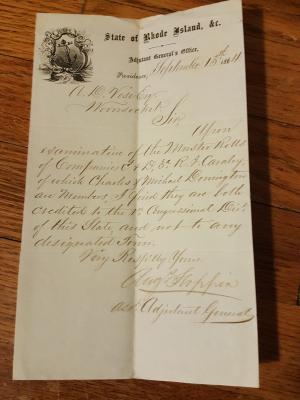 State of Rhode Island, &c.
Adjutant General's Office,
Providence, September 15th 1864
A. D. Vose Esq
Woonsocket
Sir,
Upon
examination of the Muster Rolls
of Companies C & D, 3d R. I. Cavalry,
of which Charles & Michael
are Members, I find they are both
credited to the Congressional Dist.
of this State, and not to any
designated Town.
Very Respy Yours
Augs Hoppin
Asst Adjutant General